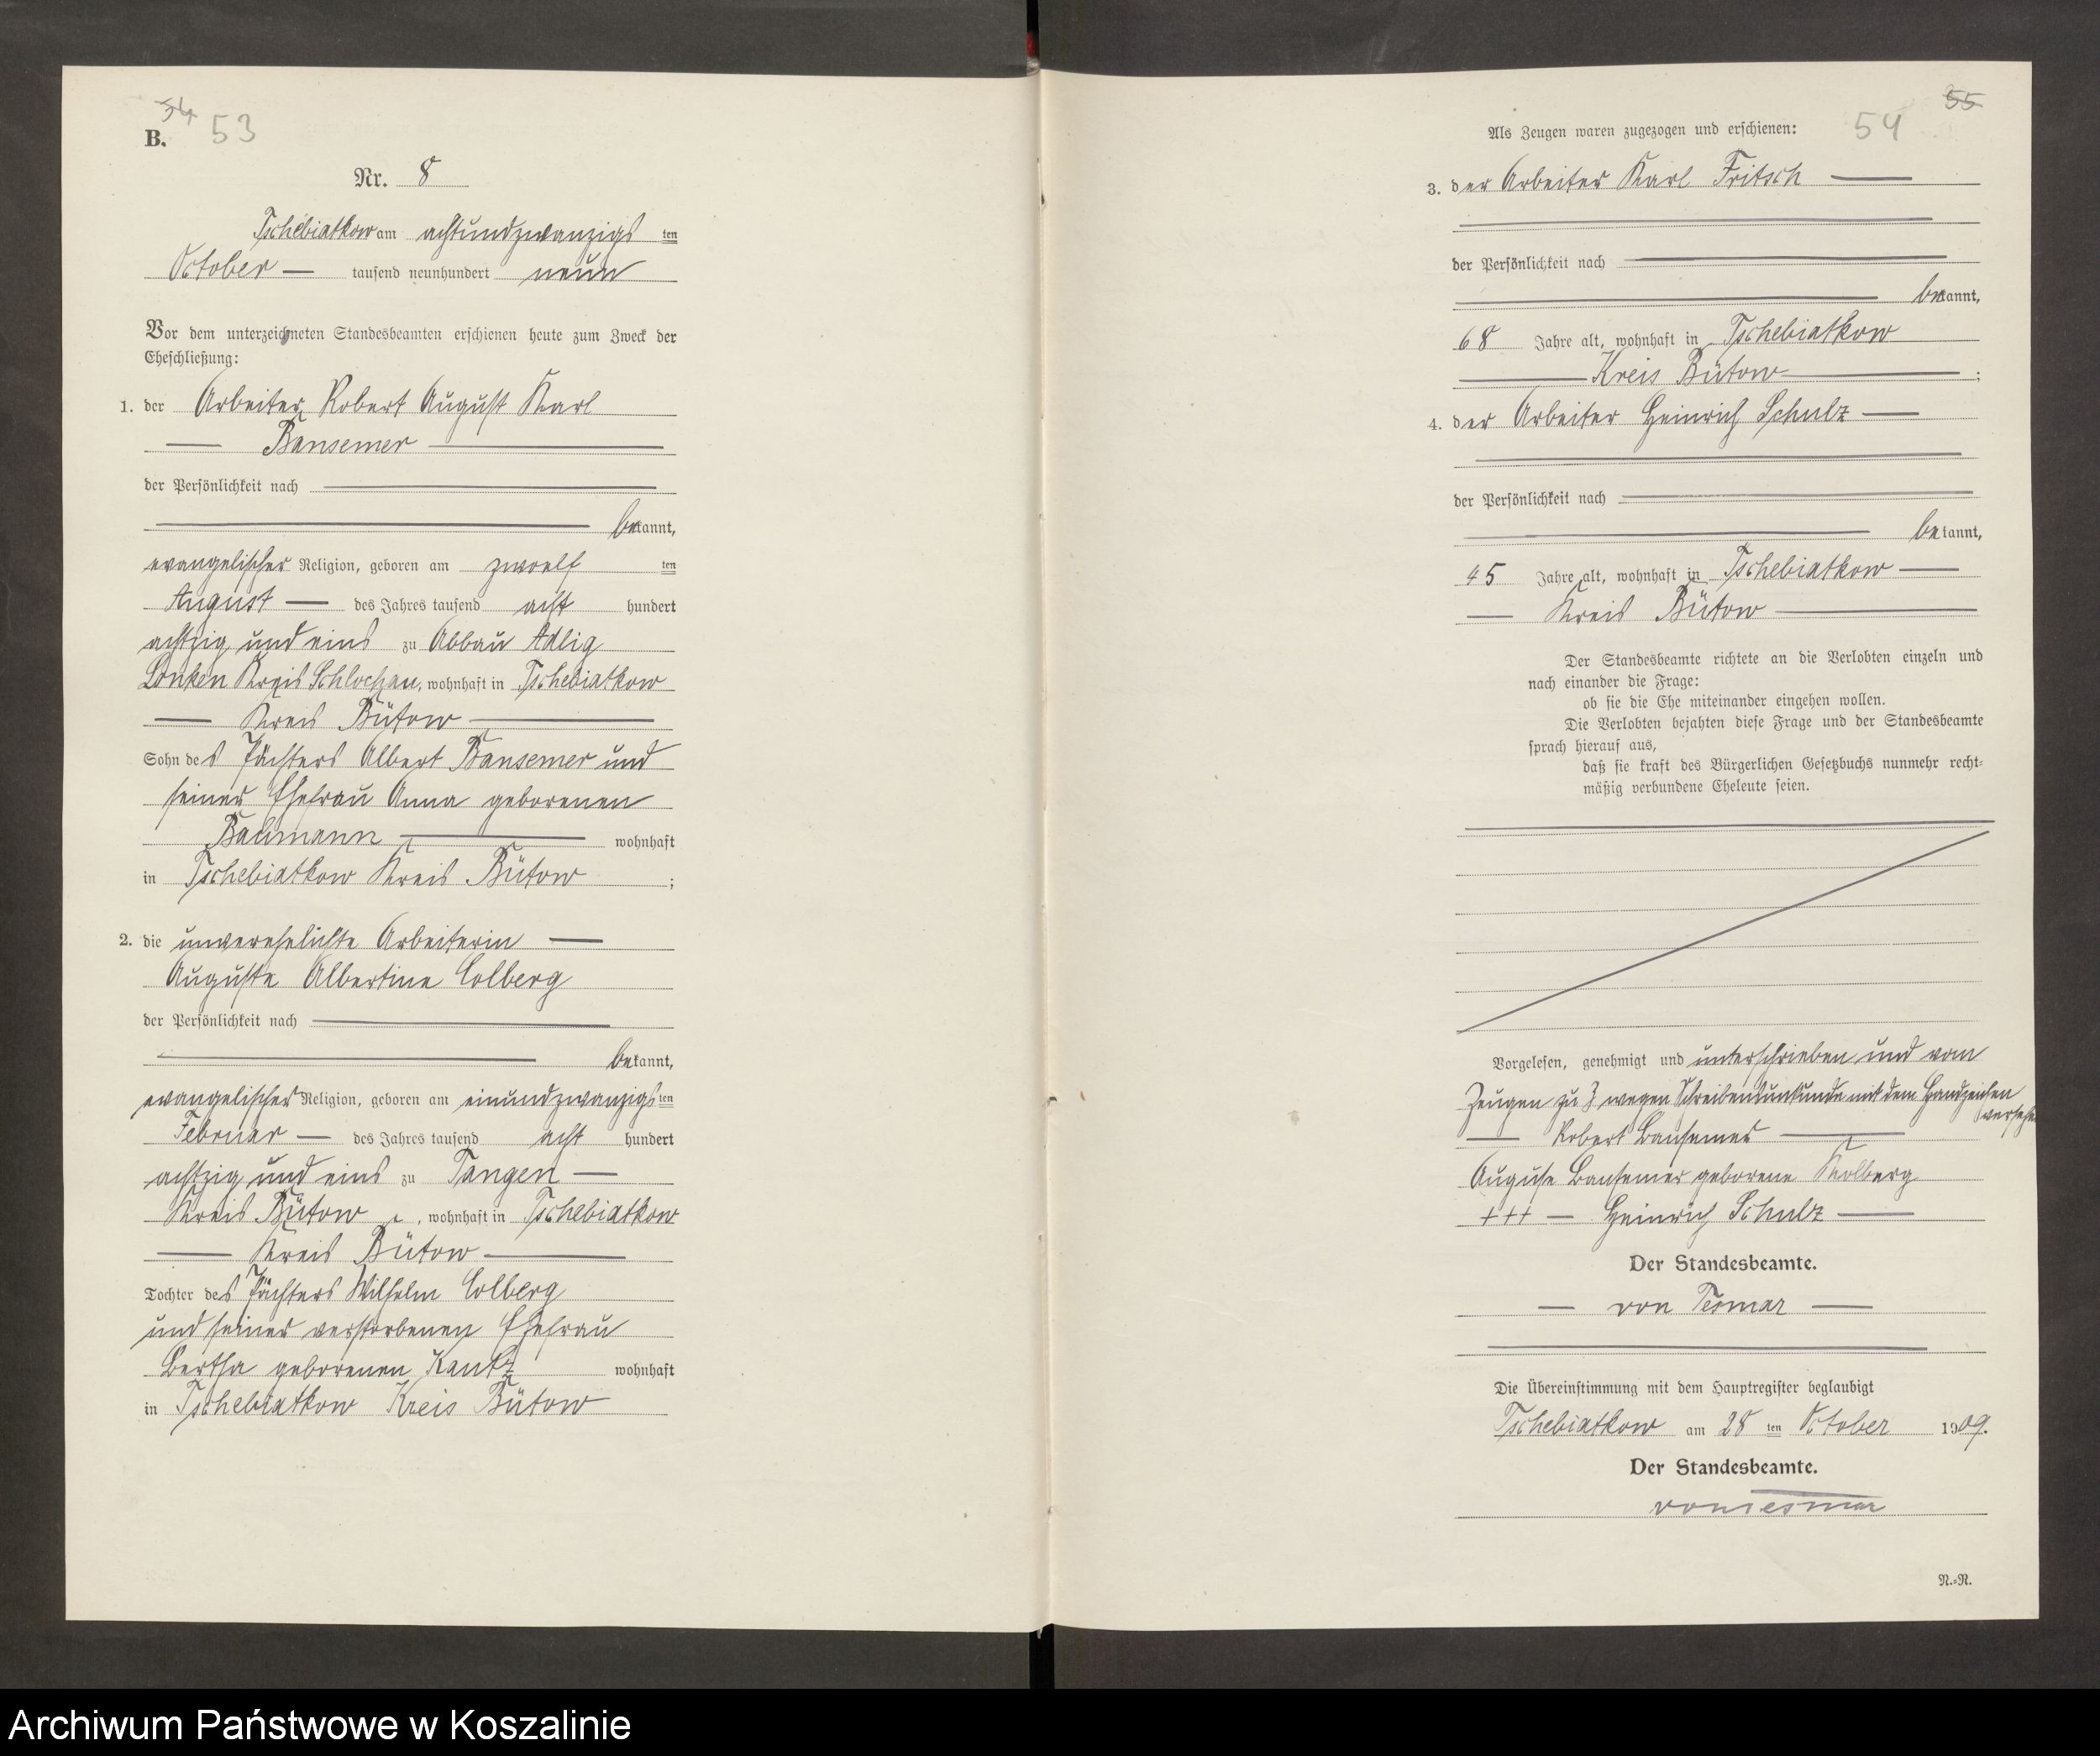 54
B. 53
Nr. 8
Tschebiatkow am achtundzwanzigs ten
October — tausend neunhundert neun
Vor dem unterzeichneten Standesbeamten erschienen heute zum Zweck der
Eheschließung:
1. der Arbeiter Robert August Karl
— Bansemer —
der Persönlichkeit nach —
— bekannt,
evangelischer Religion, geboren am zwoelf ten
August — des Jahres tausend acht hundert
achtzig und eins zu Abbau Adlig
Lonken Kreis Schlochau, wohnhaft in Tschebiatkow
— Kreis Bütow —
Sohn des Pächters Albert Bansemer und
seiner Ehefrau Anna geborenen
Bahmann — wohnhaft
in Tschebiatkow Kreis Bütow ;
2. die unverehelichte Arbeiterin —
Auguste Albertine Colberg
der Persönlichkeit nach —
— bekannt,
evangelischer Religion, geboren am einundzwanzigs ten
Februar — des Jahres tausend acht hundert
achtzig und eins zu Tangen —
Kreis Bütow , wohnhaft in Tschebiatkow
— Kreis Bütow —
Tochter des Pächters Wilhelm Colberg
und seiner verstorbenen Ehefrau
Bertha geborenen Kautz wohnhaft
in Tschebiatkow Kreis Bütow
55
Als Zeugen waren zugezogen und erschienen: 54
3. der Arbeiter Karl Fritsch —
der Persönlichkeit nach —
— bekannt,
68 Jahre alt, wohnhaft in Tschebiatkow
— Kreis Bütow — ;
4. der Arbeiter Heinrich Schulz —
der Persönlichkeit nach —
— bekannt,
45 Jahre alt, wohnhaft in Tschebiatkow —
— Kreis Bütow —
Der Standesbeamte richtete an die Verlobten einzeln und
nach einander die Frage:
ob sie die Ehe miteinander eingehen wollen.
Die Verlobten bejahten diese Frage und der Standesbeamte
sprach hierauf aus,
daß sie kraft des Bürgerlichen Gesetzbuchs nunmehr recht-
mäßig verbundene Eheleute seien.
Vorgelesen, genehmigt und unterschrieben und vom
Zeugen zu 3 wegen Schreibensunkunde mit dem Handzeichen
versehen
— Robert Bansemer —
Auguse Bansemer geborene Kolberg
+++ — Heinrich Schulz —
Der Standesbeamte.
— von Tesmar —
Die Übereinstimmung mit dem Hauptregister beglaubigt
Tschebiatkow am 28 ten October 1909.
Der Standesbeamte.
von Tesmar
N.-N.
Archiwum Państwowe w Koszalinie